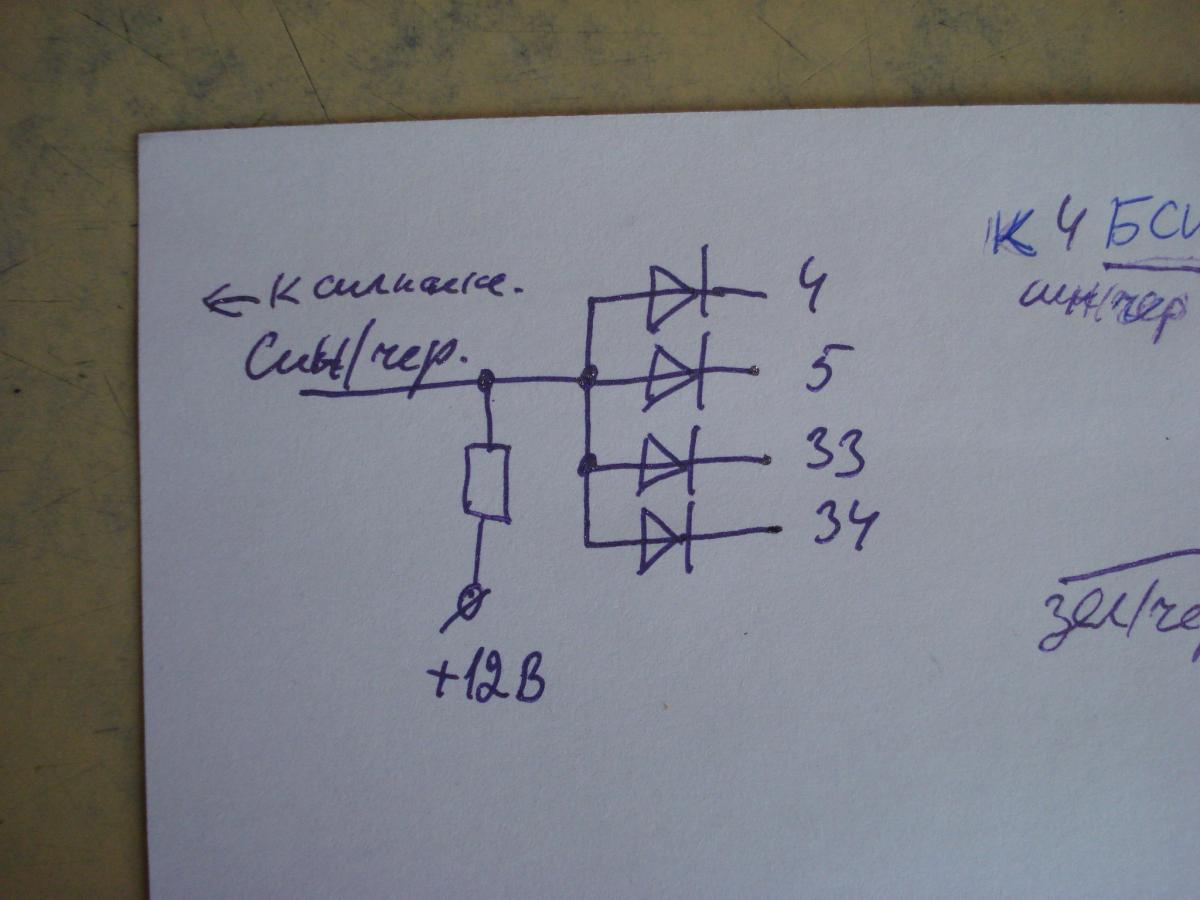 ← К сигналке.
Син/чер.
4
5
33
34
+12В
К 4 БСИ
син/чер
зел/че